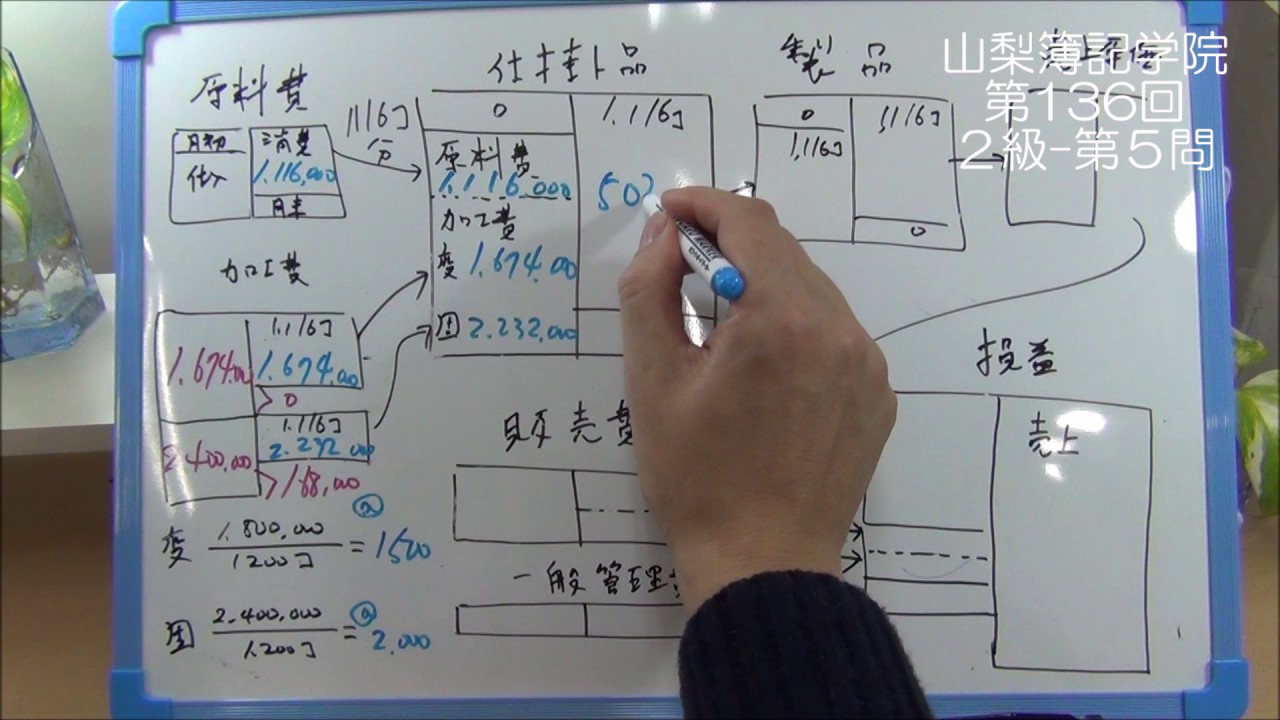 山梨簿記学院
第136回
2級-第5問
原料費
月初
仕入
消費
1,116,000
月末
1116コ
分
仕掛品
0
原料費
1.116.000
加工費
変 1.674.00
固 2.232,000
1.116コ
製品
0
1,116コ
1116コ
0
加工費
1.674.00
1.116コ
1.674.00
0
2.400.00
1.116コ
2.232.000
168,00
変 1.800,000 / 1200コ = @ 1500
固 2.400.000 / 1.200コ = @ 2.000
販売費
一般管理
損益
売上